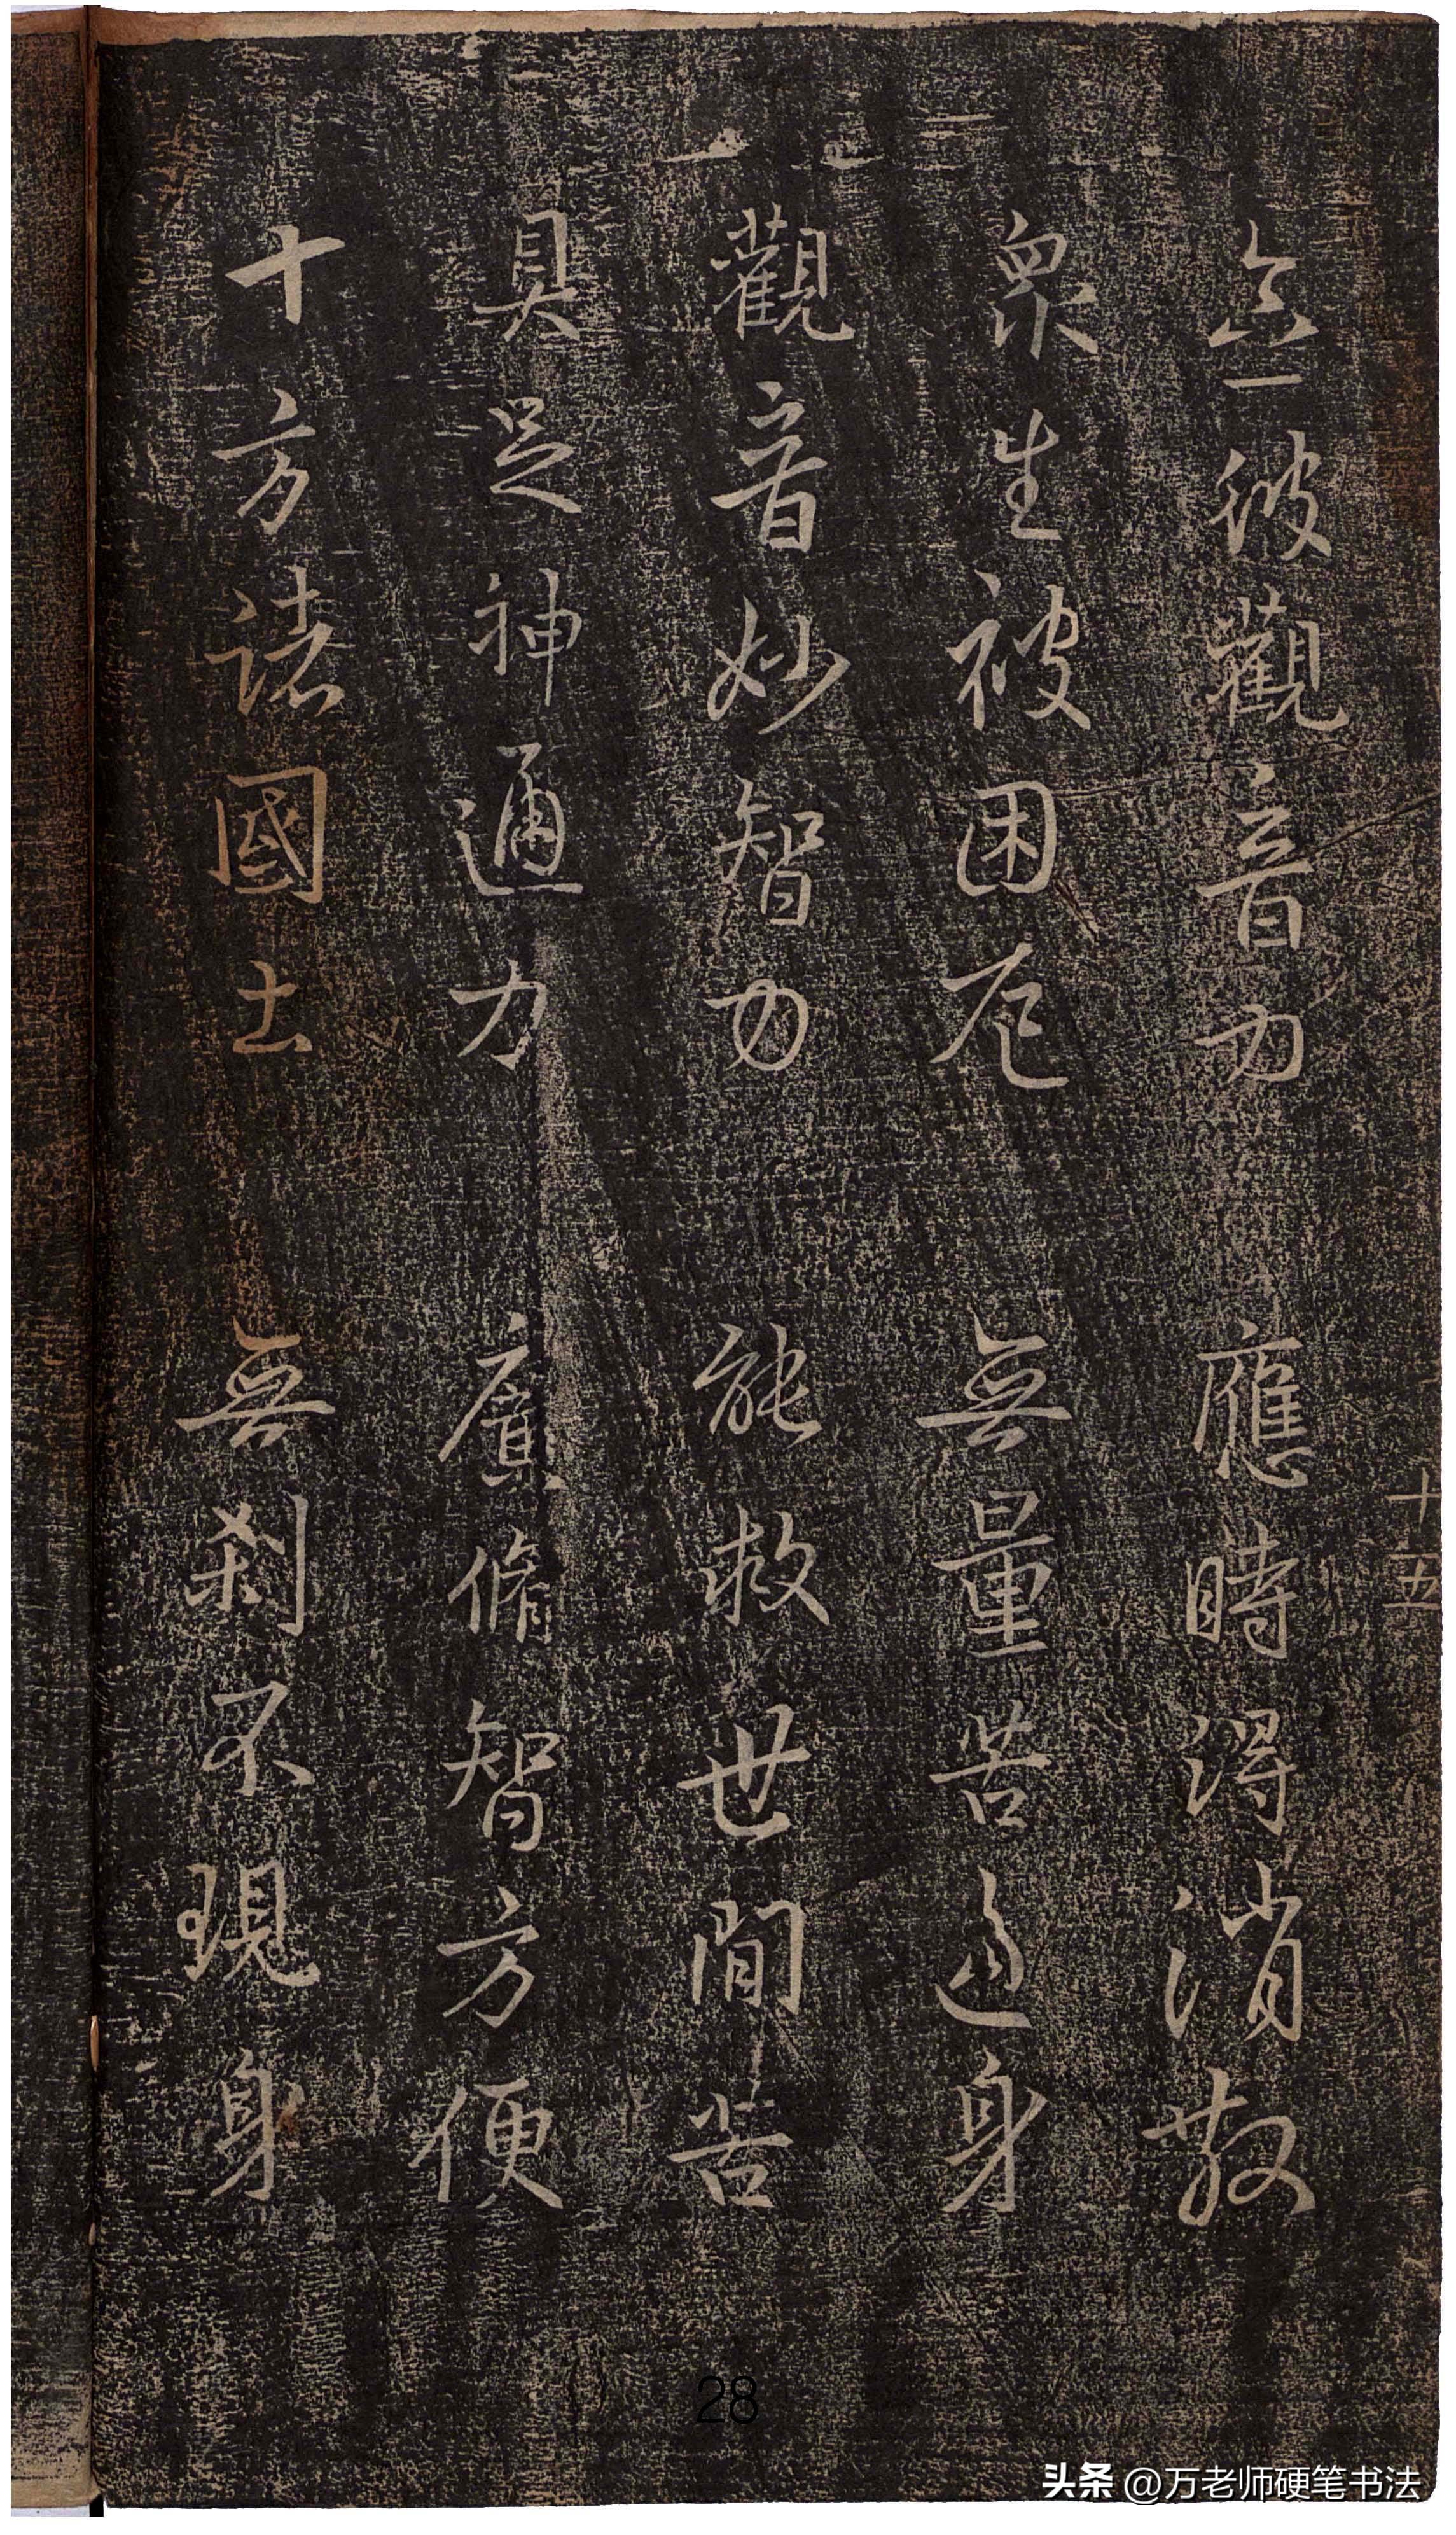 念彼觀音力 應時得消散
眾生被困厄 無量苦逼身
觀音妙智力 能救世間苦
具足神通力 廣修智方便
十方諸國土 無刹不現身
十五
28
头条 @万老师硬笔书法